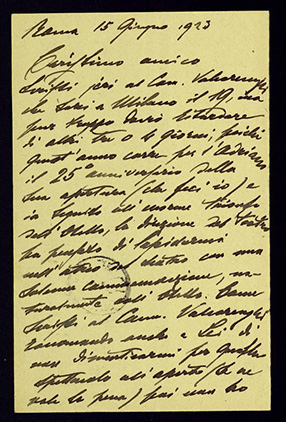 Roma 15 Giugno 1923
Carissimo amico
Scrissi jeri al Cav. Valcarenghi
che sarò a Milano il 19, ma
pur troppo dovrò ritardare
di altri tre o 4 giorni, poichè
quest'anno corre per l'Adriano
il 25° anniversario della
sua apertura (che feci io) e
in seguito all'enorme trionfo
dell'Otello, la direzione del teatro
ha pensato di lapidarmi
nell'atrio del teatro con una
solenne commemorazione, na-
turalmente coll'Otello. Come
scrissi al Comm. Valcarenghi
raccomando anche a Lei di
non dimenticarmi per qualche
spettacolo all'aperto (che ne
vale la pena) poi una ho